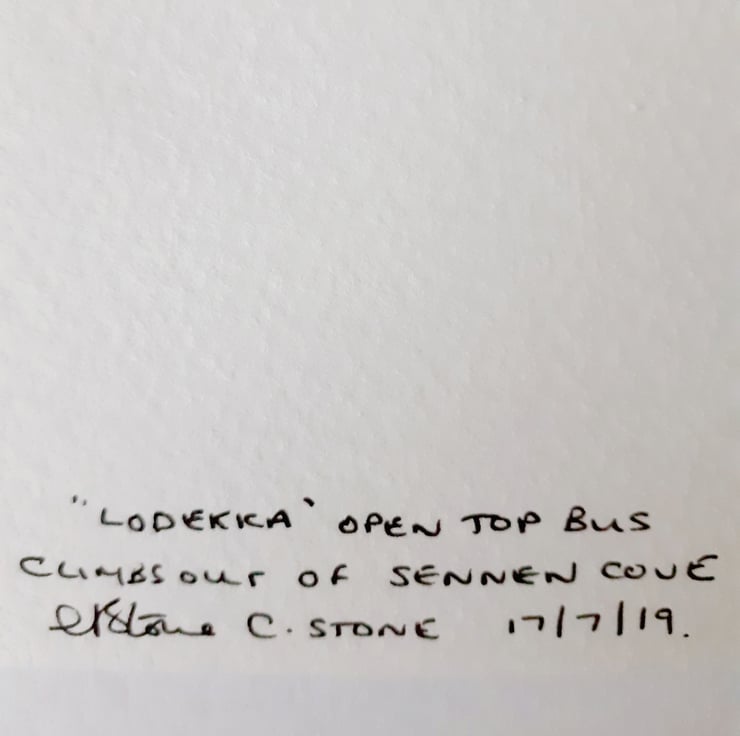 "LODEKKA" OPEN TOP BUS
CLIMBS OUT OF SENNEN COVE
C. STONE 17/7/19.